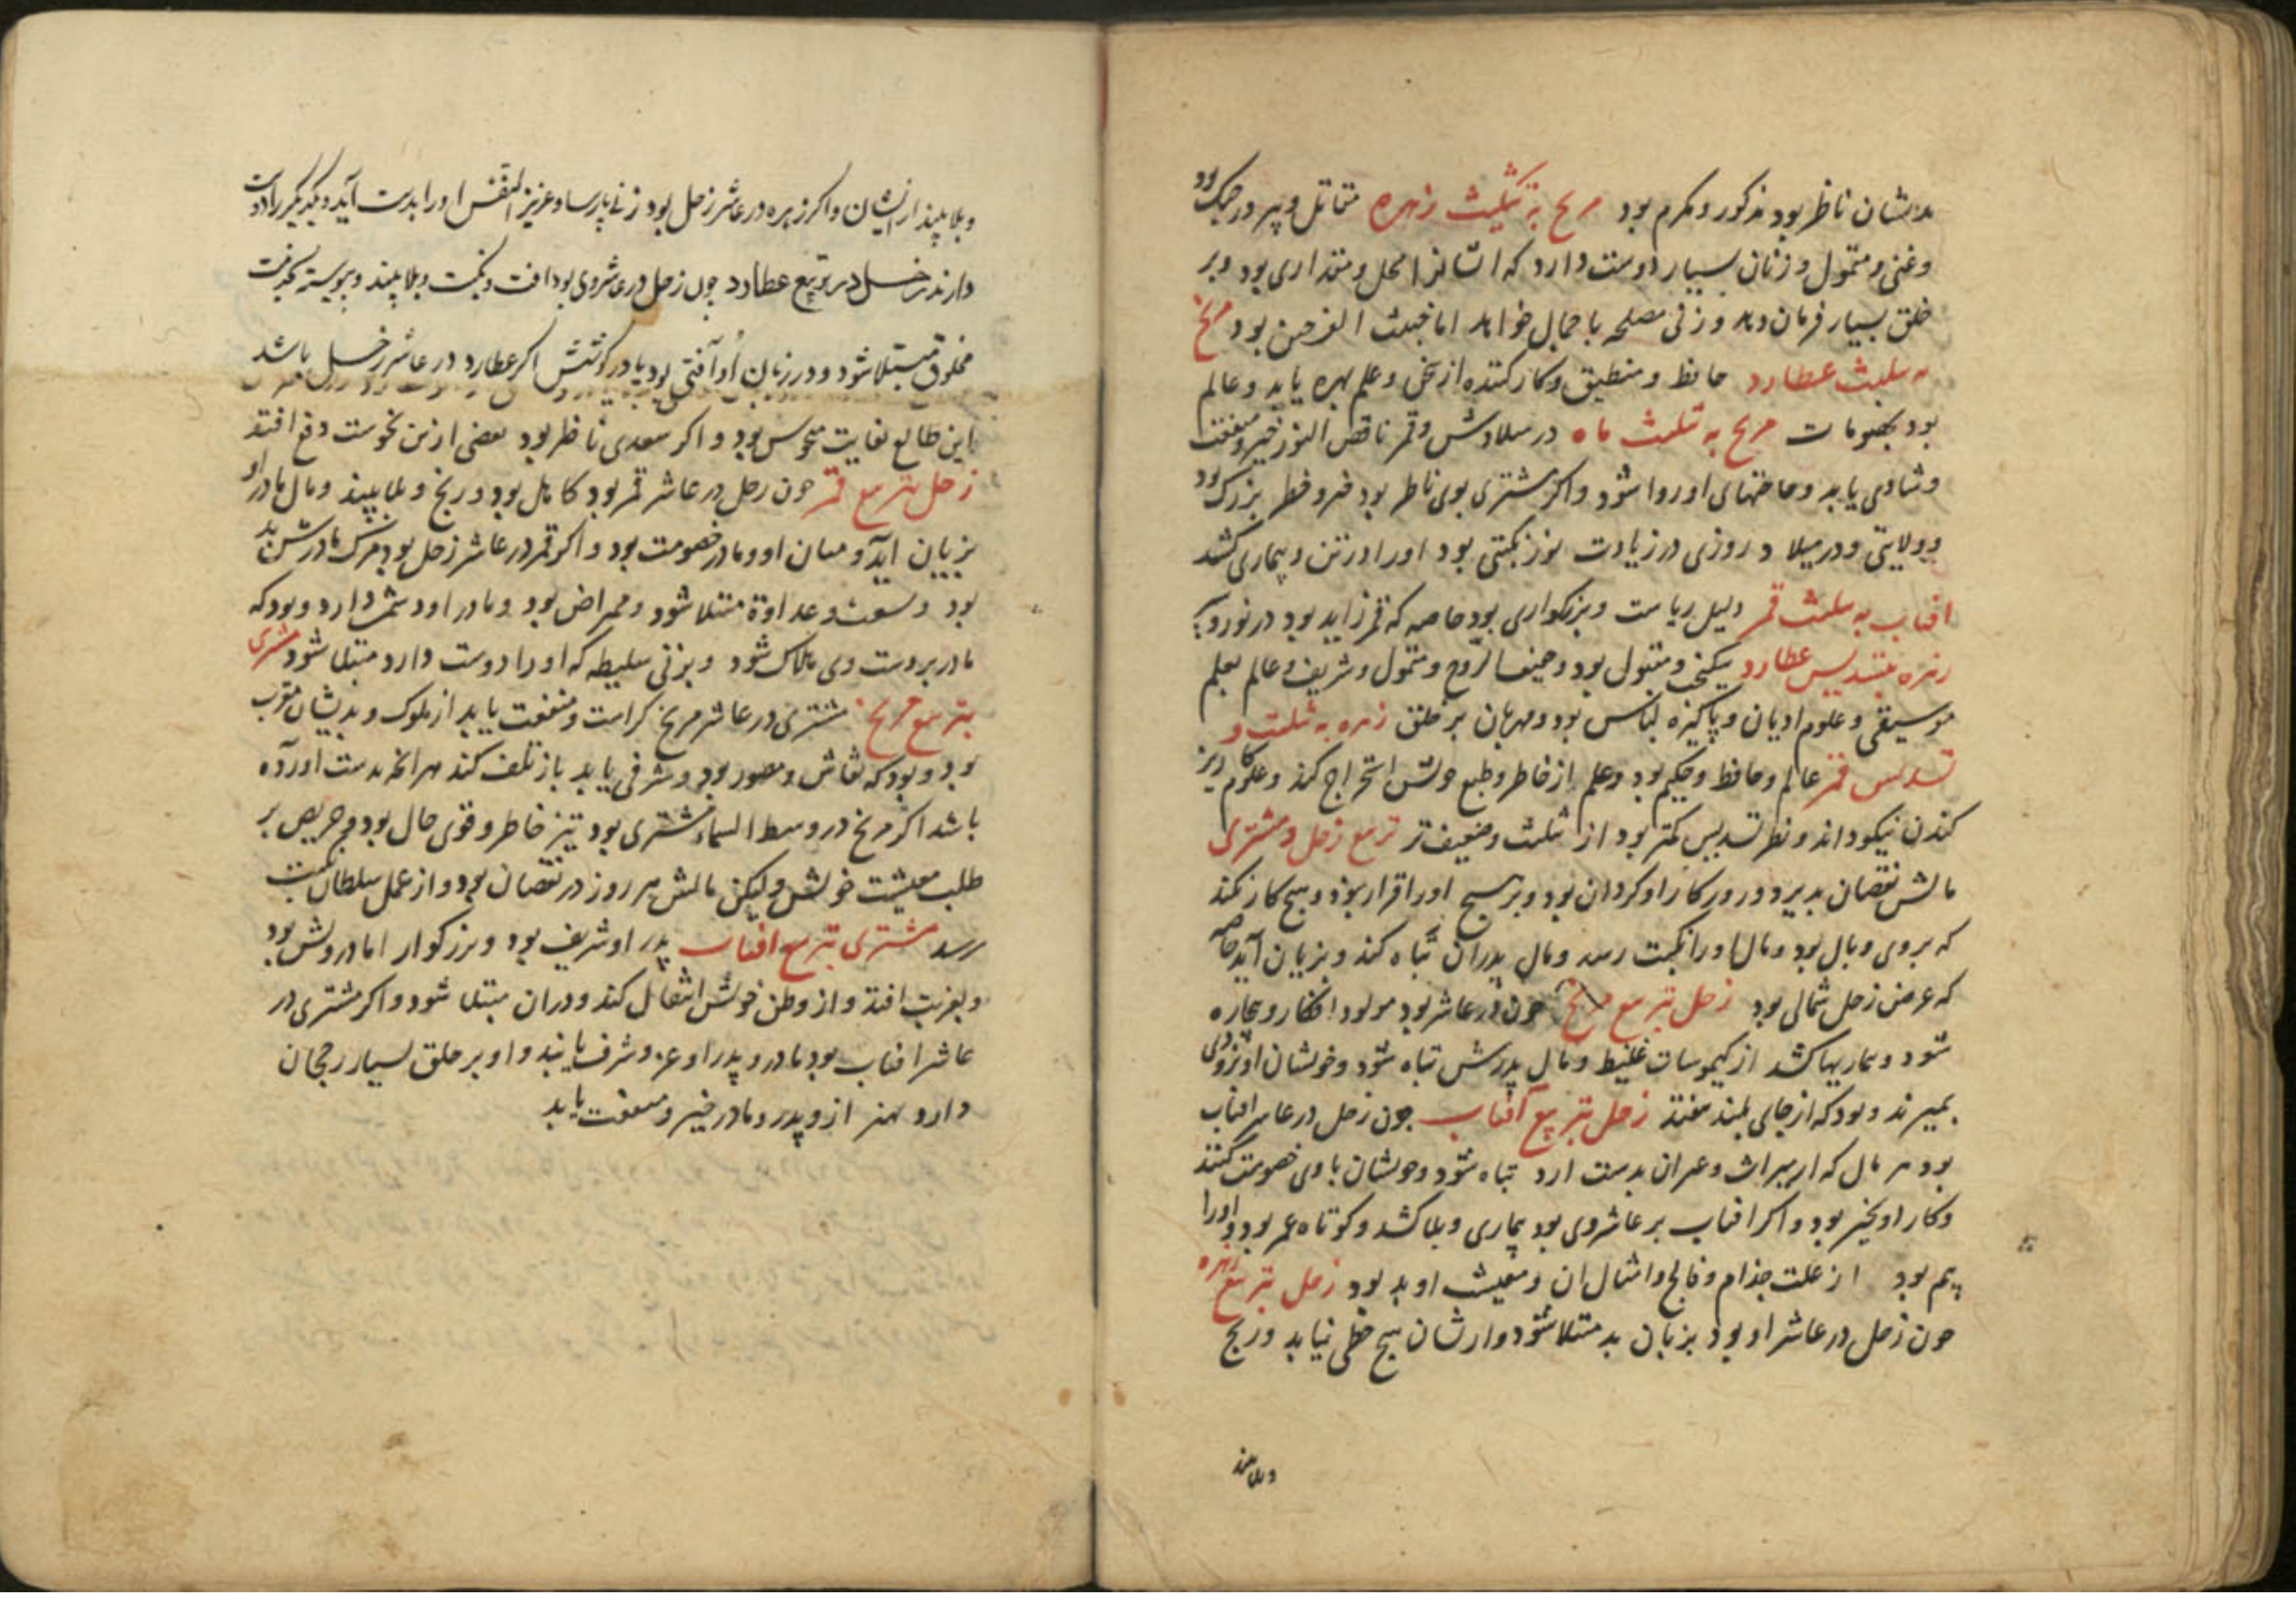 بدیشان ناظر بود مذکور و مکرم بود مریخ به تثلیث زهره مقاتل و پیر در جنک بود
وغنی و متمول و زنان بسیار دوست دارد که محل و مقداری بود و بر
خلق بسیار فرمان دهد و زنی مصلحه با جمال خواهد اما خبیث الفرجین بود مریخ
به تثلیث عطارد حافظ و منطیق و کارکننده از سخن و علم بهره یابد و عالم
بود بنجومات مریخ به تثلیث ماه در میلادش و قمر ناقص النور خیر و منفعت
وشادی یابد وحاجتهای اوروا شود و اکر مشتری بوی ناظر بود خطر بزرک بود
و ولایتی و در میلاد روزی در زیادت نور نکبتی بود اورا در تن و بیماری کشد
افتاب به تثلیث قمر دلیل ریاست و بزرکواری بود خاصه که قمر زاید بود در نور
زهره بتسدیس عطارد نیکبخت و مقبول بود و خفیف الروح و متمول و شریف و عالم بعلم
موسیقی و علوم ادیان و پاکیزه لباس بود و مهربان بر خلق زهره به تثلیث و
تسدیس قمر عالم و حافظ و حکیم بود و علم از خاطر و طبع خویش استخراج کند و علوم
کندن نیکو داند و نظر تسدیس کمتر بود از تثلیث و ضعیف تر تربیع زحل و مشتری
مالش نقصان پذیرد و روزکار او کردان بود و بر هیچ اورا قرار نبود و هیچ کار نکند
که بر وی وبال بود و مال اورا نکبت رسد و مال پدران تباه کند و بزیان آید خاصه
که عرض زحل شمالی بود زحل بتربیع مریخ چون در عاشر بود مولود
شود و بماریها کشد از کیموسات غلیظ و مال پدرش تباه شود و خویشان او بزودی
بمیرند و بود که از جای بلند بیفتد زحل بتربیع آفتاب چون زحل در عاشر افتاب
بود هر مال که از میراث بدست آرد تباه شود و خویشان با وی خصومت کنند
وکار او بخیر بود و اکر افتاب بر عاشر وی بود بیماری و بلا کشد و کوتاه عمر بود و اورا
بیم بود از علت جذام و فالج و امثال ان و معیشت او بد بود زحل بتربیع زهره
چون زحل در عاشر او بود بزنان بد مبتلا شود و از شان هیچ حظی نیابد و رنج
و بلا بیند
و بلا بیند از ایشان و اکر زهره در عاشر زحل بود زنی پارسا و عزیز النفس اورا بدست آید و یکدیکر را دوست
دارند زحل در تربیع عطارد چون زحل در عاشر وی بود افت و نکبت و بلا بیند و پیوسته بخدمت
مخلوق مبتلا شود و در زبان او آفتی بود یا در کوشش اکر عطارد در عاشر زحل باشد
این طالع بغایت منحوس بود و اکر سعدی ناظر بود بعضی ازین نحوست دفع افتد
زحل بتربیع قمر چون زحل در عاشر قمر بود کاهل بود و رنج و بلا بیند و مال مادر او
بزیان آید و میان او و مادر خصومت بود و اکر قمر در عاشر زحل بود مرک مادرش بد
بود و عداوة مبتلا شود و ممراض بود و مادر او دشمن دارد و بود که
مادر بر دست وی هلاک شود و بزنی سلیطه که اورا دوست دارد مبتلا شود مشتری
بتربیع مریخ مشتری در عاشر مریخ کرامت و منفعت یابد از ملوک و بدیشان مقرب
بود و بود که نقاش و مصور بود و شرفی یابد باز تلف کند هرانچه بدست اورده
باشد اکر مریخ در وسط السماء مشتری بود تیز خاطر و قوی حال بود و حریص بر
طلب معیشت خویش ولیکن مالش هر روز در نقصان بود و از عمل سلطان نکبت
رسد مشتری بتربیع افتاب پدر او شریف بود و بزرکوار اما درویش بود
و بغربت افتد و از وطن خویش انتقال کند و دران مبتلا شود و اکر مشتری در
عاشر افتاب بود مادر و پدر او عز و شرف یابند و او بر خلق بسیار رجحان
دارد بهنر ازو پدر و مادر خیر و منفعت یابد